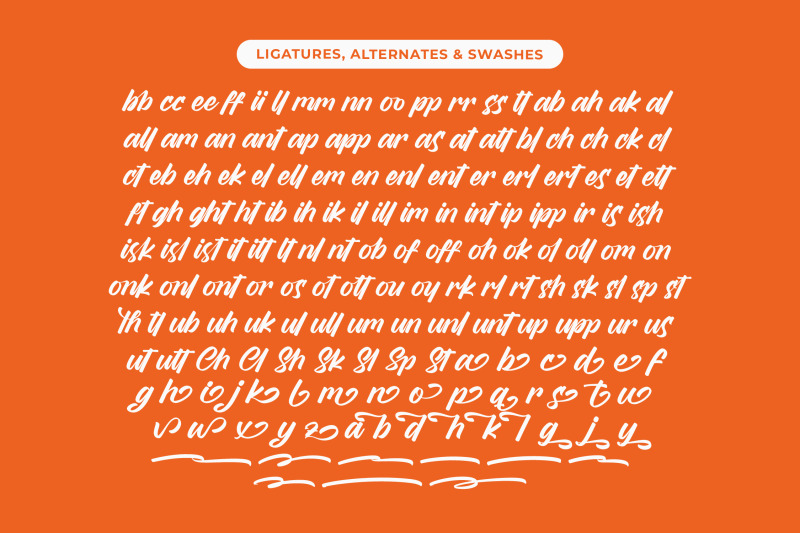 LIGATURES, ALTERNATES & SWASHES
bb cc ee ff ii ll mm nn oo pp rr ss tt ab ah ak al
all am an ant ap app ar as at att bl ch ch ck cl
ct eb eh ek el ell em en enl ent er erl ert es et ett
ft gh ght ht ib ih ik il ill im in int ip ipp ir is ish
isk isl ist it itt lt nl nt ob of off oh ok ol oll om on
onk onl ont or os ot ott ou oy rk rl rt sh sk sl sp st
th tl ub uh uk ul ull um un unl unt up upp ur us
ut utt Ch Cl Sh Sk Sl Sp St a b c d e f
g h i j k l m n o p q r s t u
v w x y z a b d h k l g j y